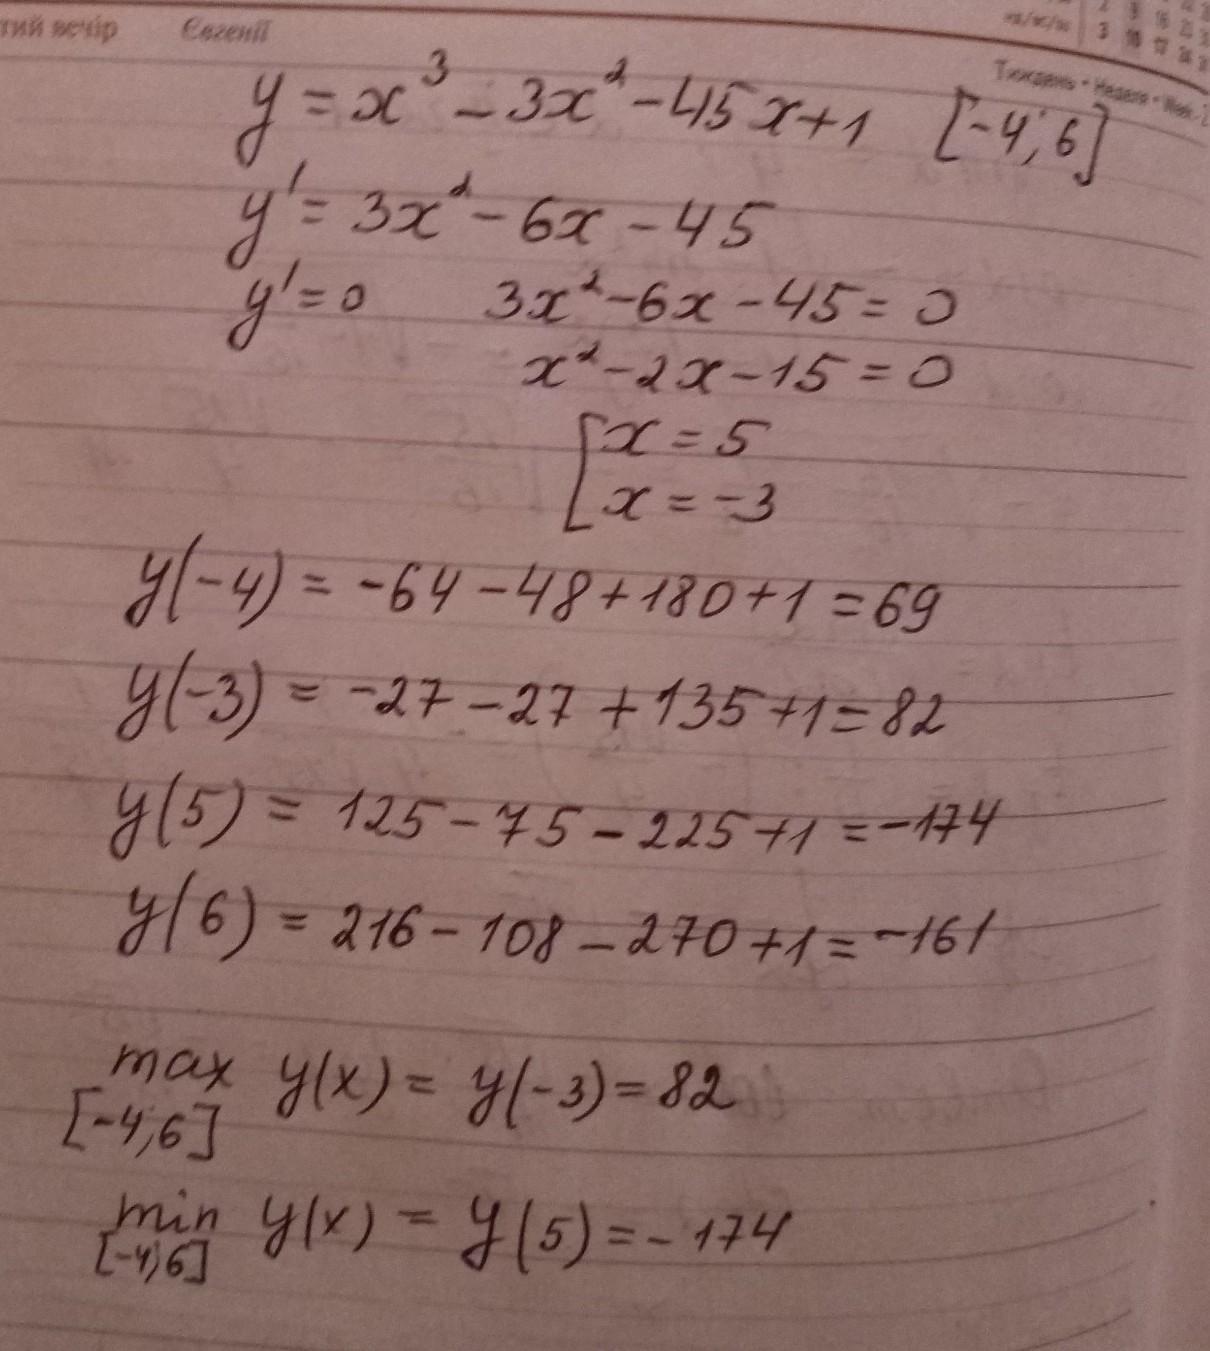 тий вечір Євгенії
3 10 17 24
Тиждень • Неделя • Week
y = x³ - 3x² - 45x + 1 [-4; 6]
y' = 3x² - 6x - 45
y' = 0 3x² - 6x - 45 = 0
x² - 2x - 15 = 0
[x = 5
x = -3
y(-4) = -64 - 48 + 180 + 1 = 69
y(-3) = -27 - 27 + 135 + 1 = 82
y(5) = 125 - 75 - 225 + 1 = -174
y(6) = 216 - 108 - 270 + 1 = -161
max y(x) = y(-3) = 82
[-4; 6]
min y(x) = y(5) = -174
[-4; 6]